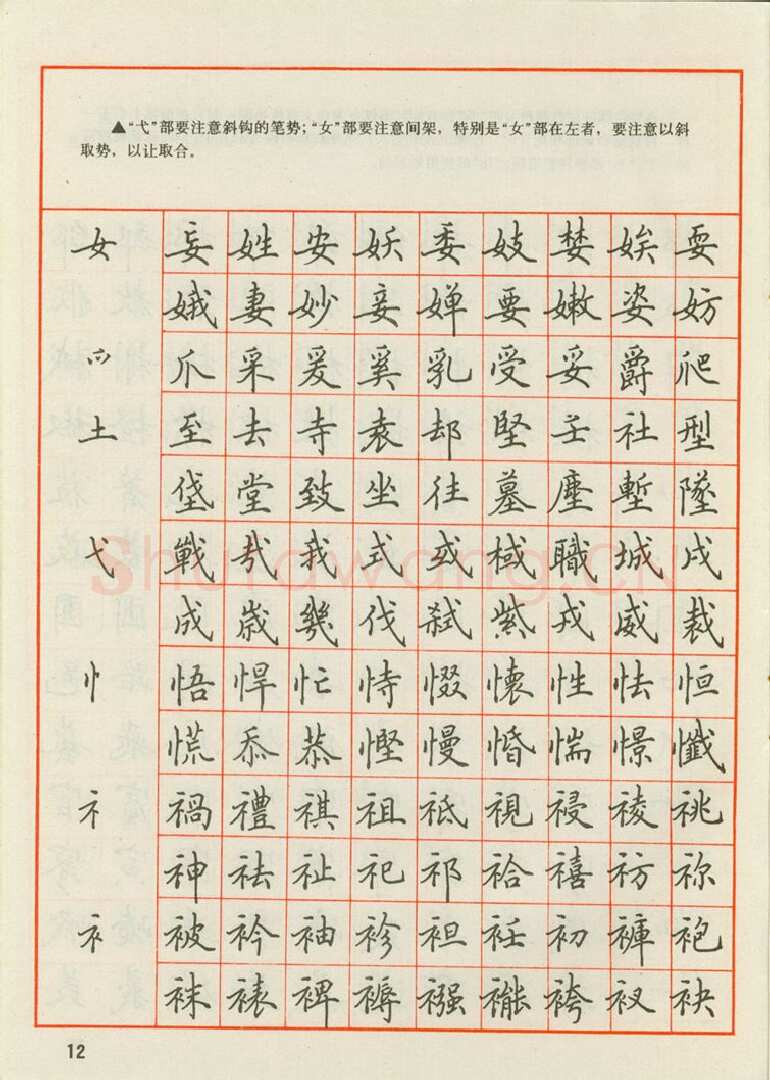 ▲“弋”部要注意斜钩的笔势；“女”部要注意间架，特别是“女”部在左者，要注意以斜
取势，以让取合。
女 妄 姓 安 妖 委 妓 婪 娭 耍
娥 妻 妙 妾 婵 要 嫩 姿 妨
爫 爪 采 爰 奚 乳 受 妥 爵 爬
土 至 去 寺 袁 却 坚 壬 社 型
垡 堂 致 坐 往 墓 塵 塹 墜
弋 戰 哉 我 式 或 械 職 城 戍
成 歲 幾 伐 弒 紫 戎 威 裁
忄 悟 悍 忙 恃 惙 懷 性 怯 恒
慌 忝 恭 慳 慢 惛 惴 憬 懺
礻 禍 禮 祺 祖 祗 視 祲 祾 祧
神 祛 祉 祀 祁 祫 禧 祊 祢
衤 被 衿 袖 袗 袒 衽 初 褲 袍
袜 裱 裨 褥 襁 袴 衩 袂
12
Shufawang.CN